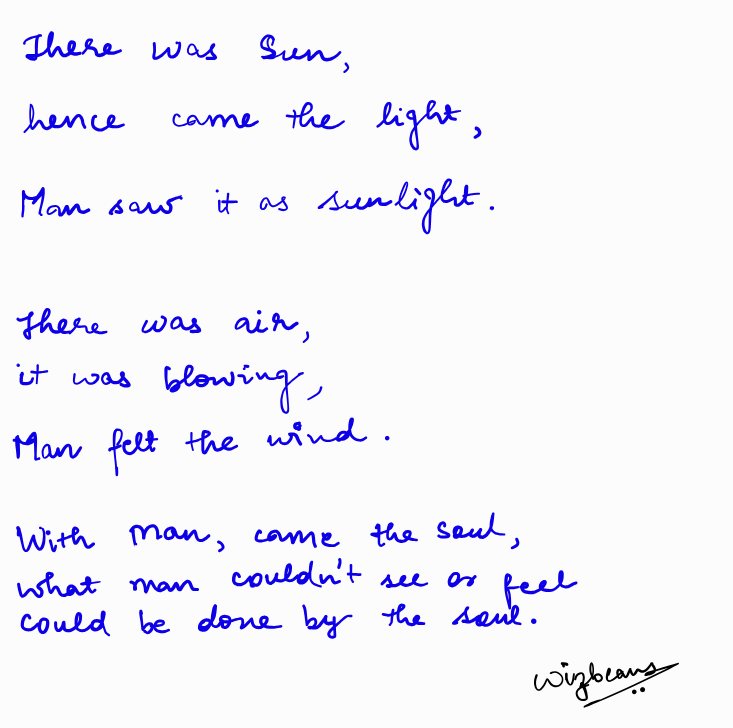 There was Sun,
hence came the light,
Man saw it as sunlight.
There was air,
it was blowing,
Man felt the wind.
With man, came the soul,
what man couldn't see or feel
could be done by the soul.
wizbeans